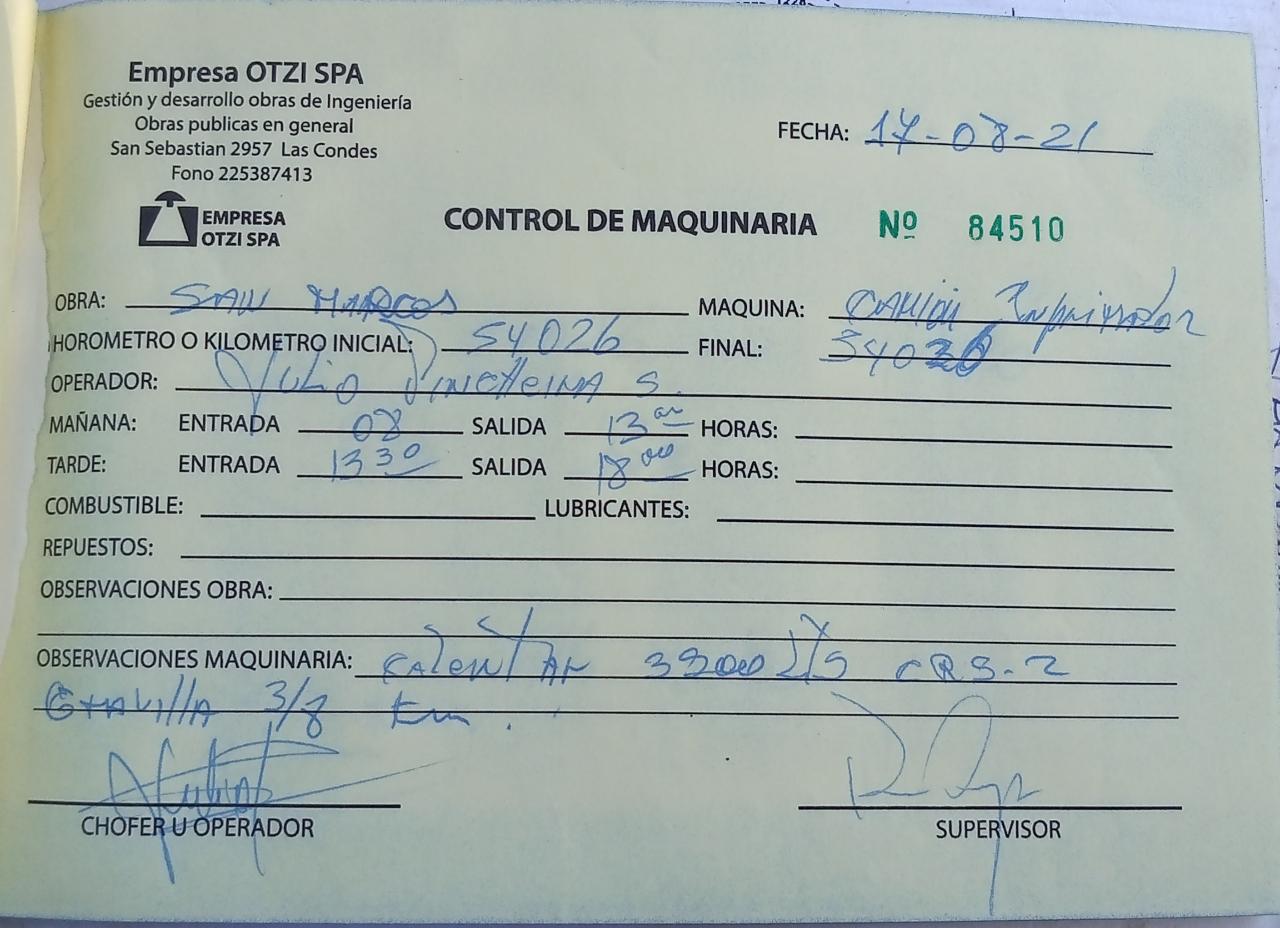 Empresa OTZI SPA
Gestión y desarrollo obras de Ingeniería
Obras publicas en general
San Sebastian 2957 Las Condes
Fono 225387413
EMPRESA
OTZI SPA
FECHA: 17-08-21
CONTROL DE MAQUINARIA Nº 84510
OBRA: SAN MARCOS MAQUINA: CAMION Imprimador
HOROMETRO O KILOMETRO INICIAL: 54026 FINAL:
OPERADOR: Julio S.
MAÑANA: ENTRADA 08 SALIDA 13 HORAS:
TARDE: ENTRADA 13 30 SALIDA 18 000 HORAS:
COMBUSTIBLE: LUBRICANTES:
REPUESTOS:
OBSERVACIONES OBRA:
OBSERVACIONES MAQUINARIA: CALENTAR CRS-2
GRAVILLA 3/8
CHOFER U OPERADOR SUPERVISOR